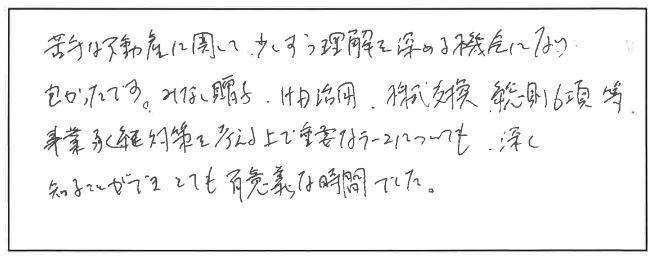 苦手な不動産に関して少しずつ理解を深める機会になり
良かったです。みなし贈与、HD活用、株式交換、総則6項等、
事業承継対策を考える上で重要なテーマについても、深く
知ることができとても有意義な時間でした。